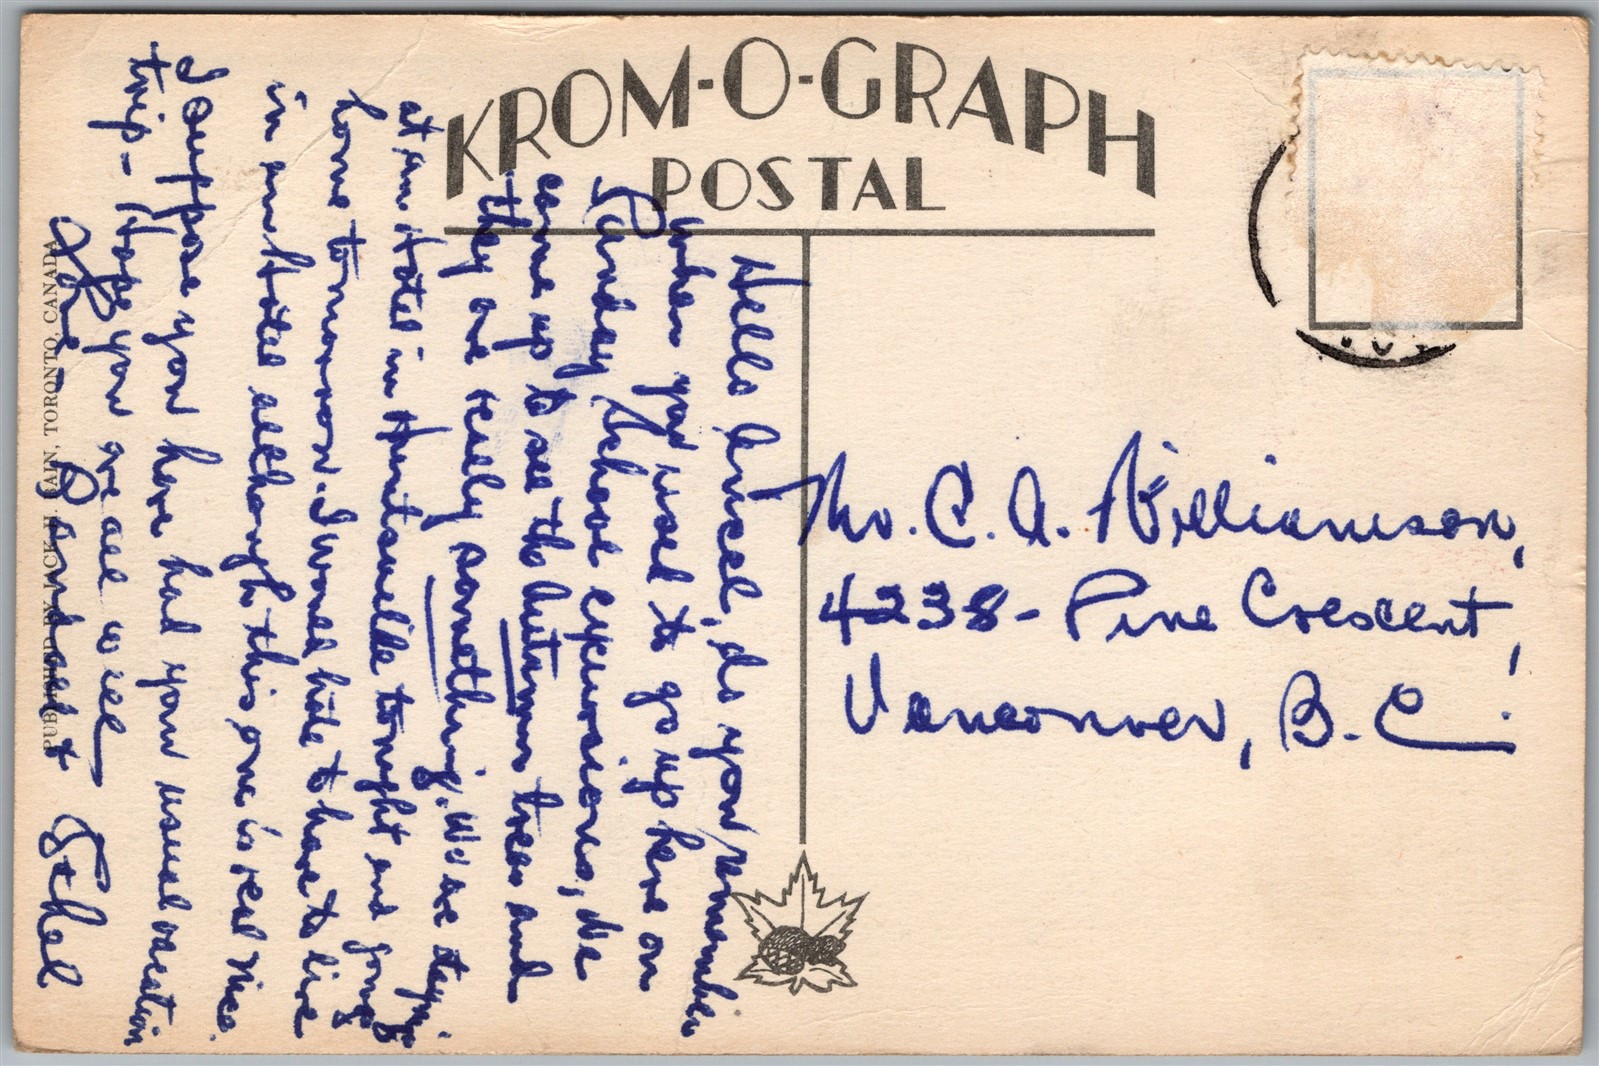 KROM-O-GRAPH
POSTAL
Hello Ansel, do you remember
when you used to go up here on
Sunday School excursions, We
came up to see the Autumn trees and
they are really something. We are staying
at an Hotel in Huntsville tonight and going
home tomorrow. I would hate to have to live
in an Hotel although this one is real nice.
I suppose you have had your usual vacation
trip - hope you are all well
and Ethel
Mr. C. A. Williamson,
4238 - Pine Crescent,
Vancouver, B.C.
TORONTO, CANADA